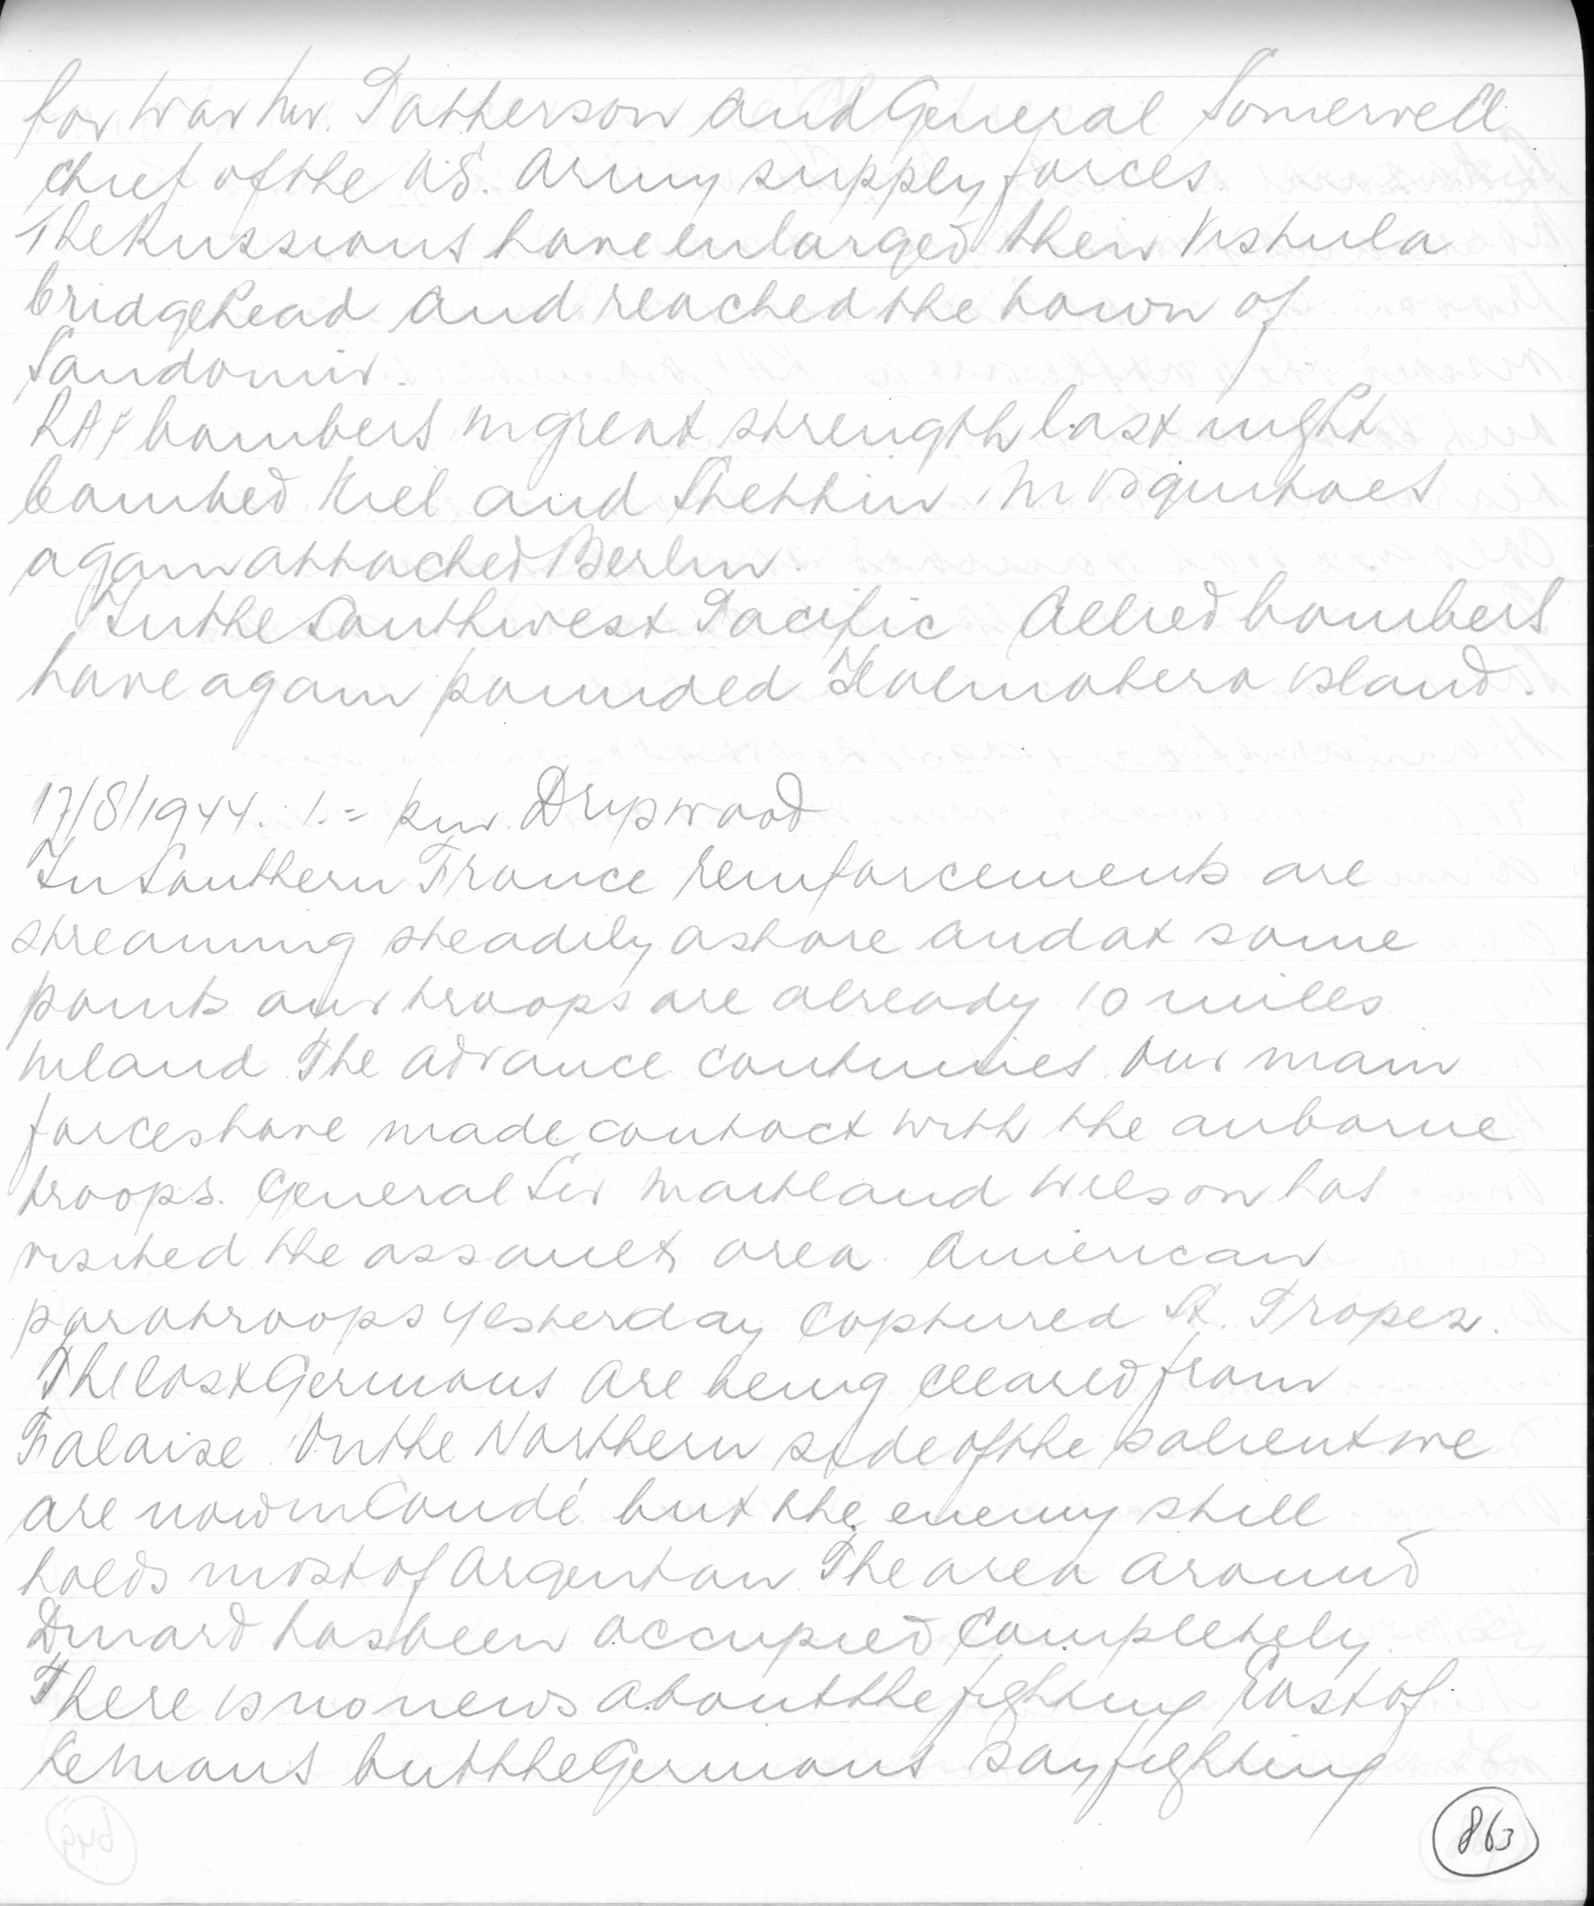 for War Mr. Patterson and General Somervell
chief of the U.S. Army supply forces.
The Russians have enlarged their Vistula
bridgehead and reached the town of
Sandomir.
RAF bombers in great strength last night
bombed Kiel and Stettin. Mosquitoes
again attacked Berlin.
In the Southwest Pacific Allied bombers
have again pounded Halmahera island.
17/8/1944. 1.= pm.
In Southern France reinforcements are
streaming steadily ashore and at some
points our troops are already 10 miles
inland. The advance continues. Our main
forces have made contact with the airborne
troops. General Sir Maitland Wilson has
visited the assault area. American
paratroops yesterday captured St. Tropez.
The last Germans are being cleared from
Falaise. On the Northern side of the salient we
are now in Condé but the enemy still
holds most of Argentan. The area around
Dinard has been occupied completely.
There is no news about the fighting East of
Le Mans but the Germans say fighting
863